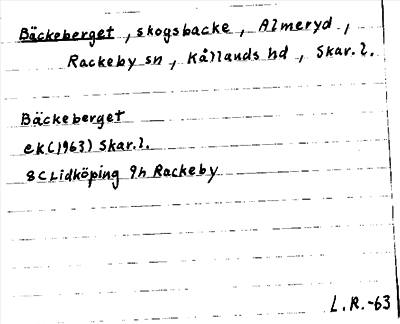 Bäckeberget, skogsbacke, Almeryd,
Rackeby sn, Kållands hd, Skar.l.
Bäckeberget
ek(1963) Skar.l.
8C Lidköping 9h Rackeby
L.R.-63